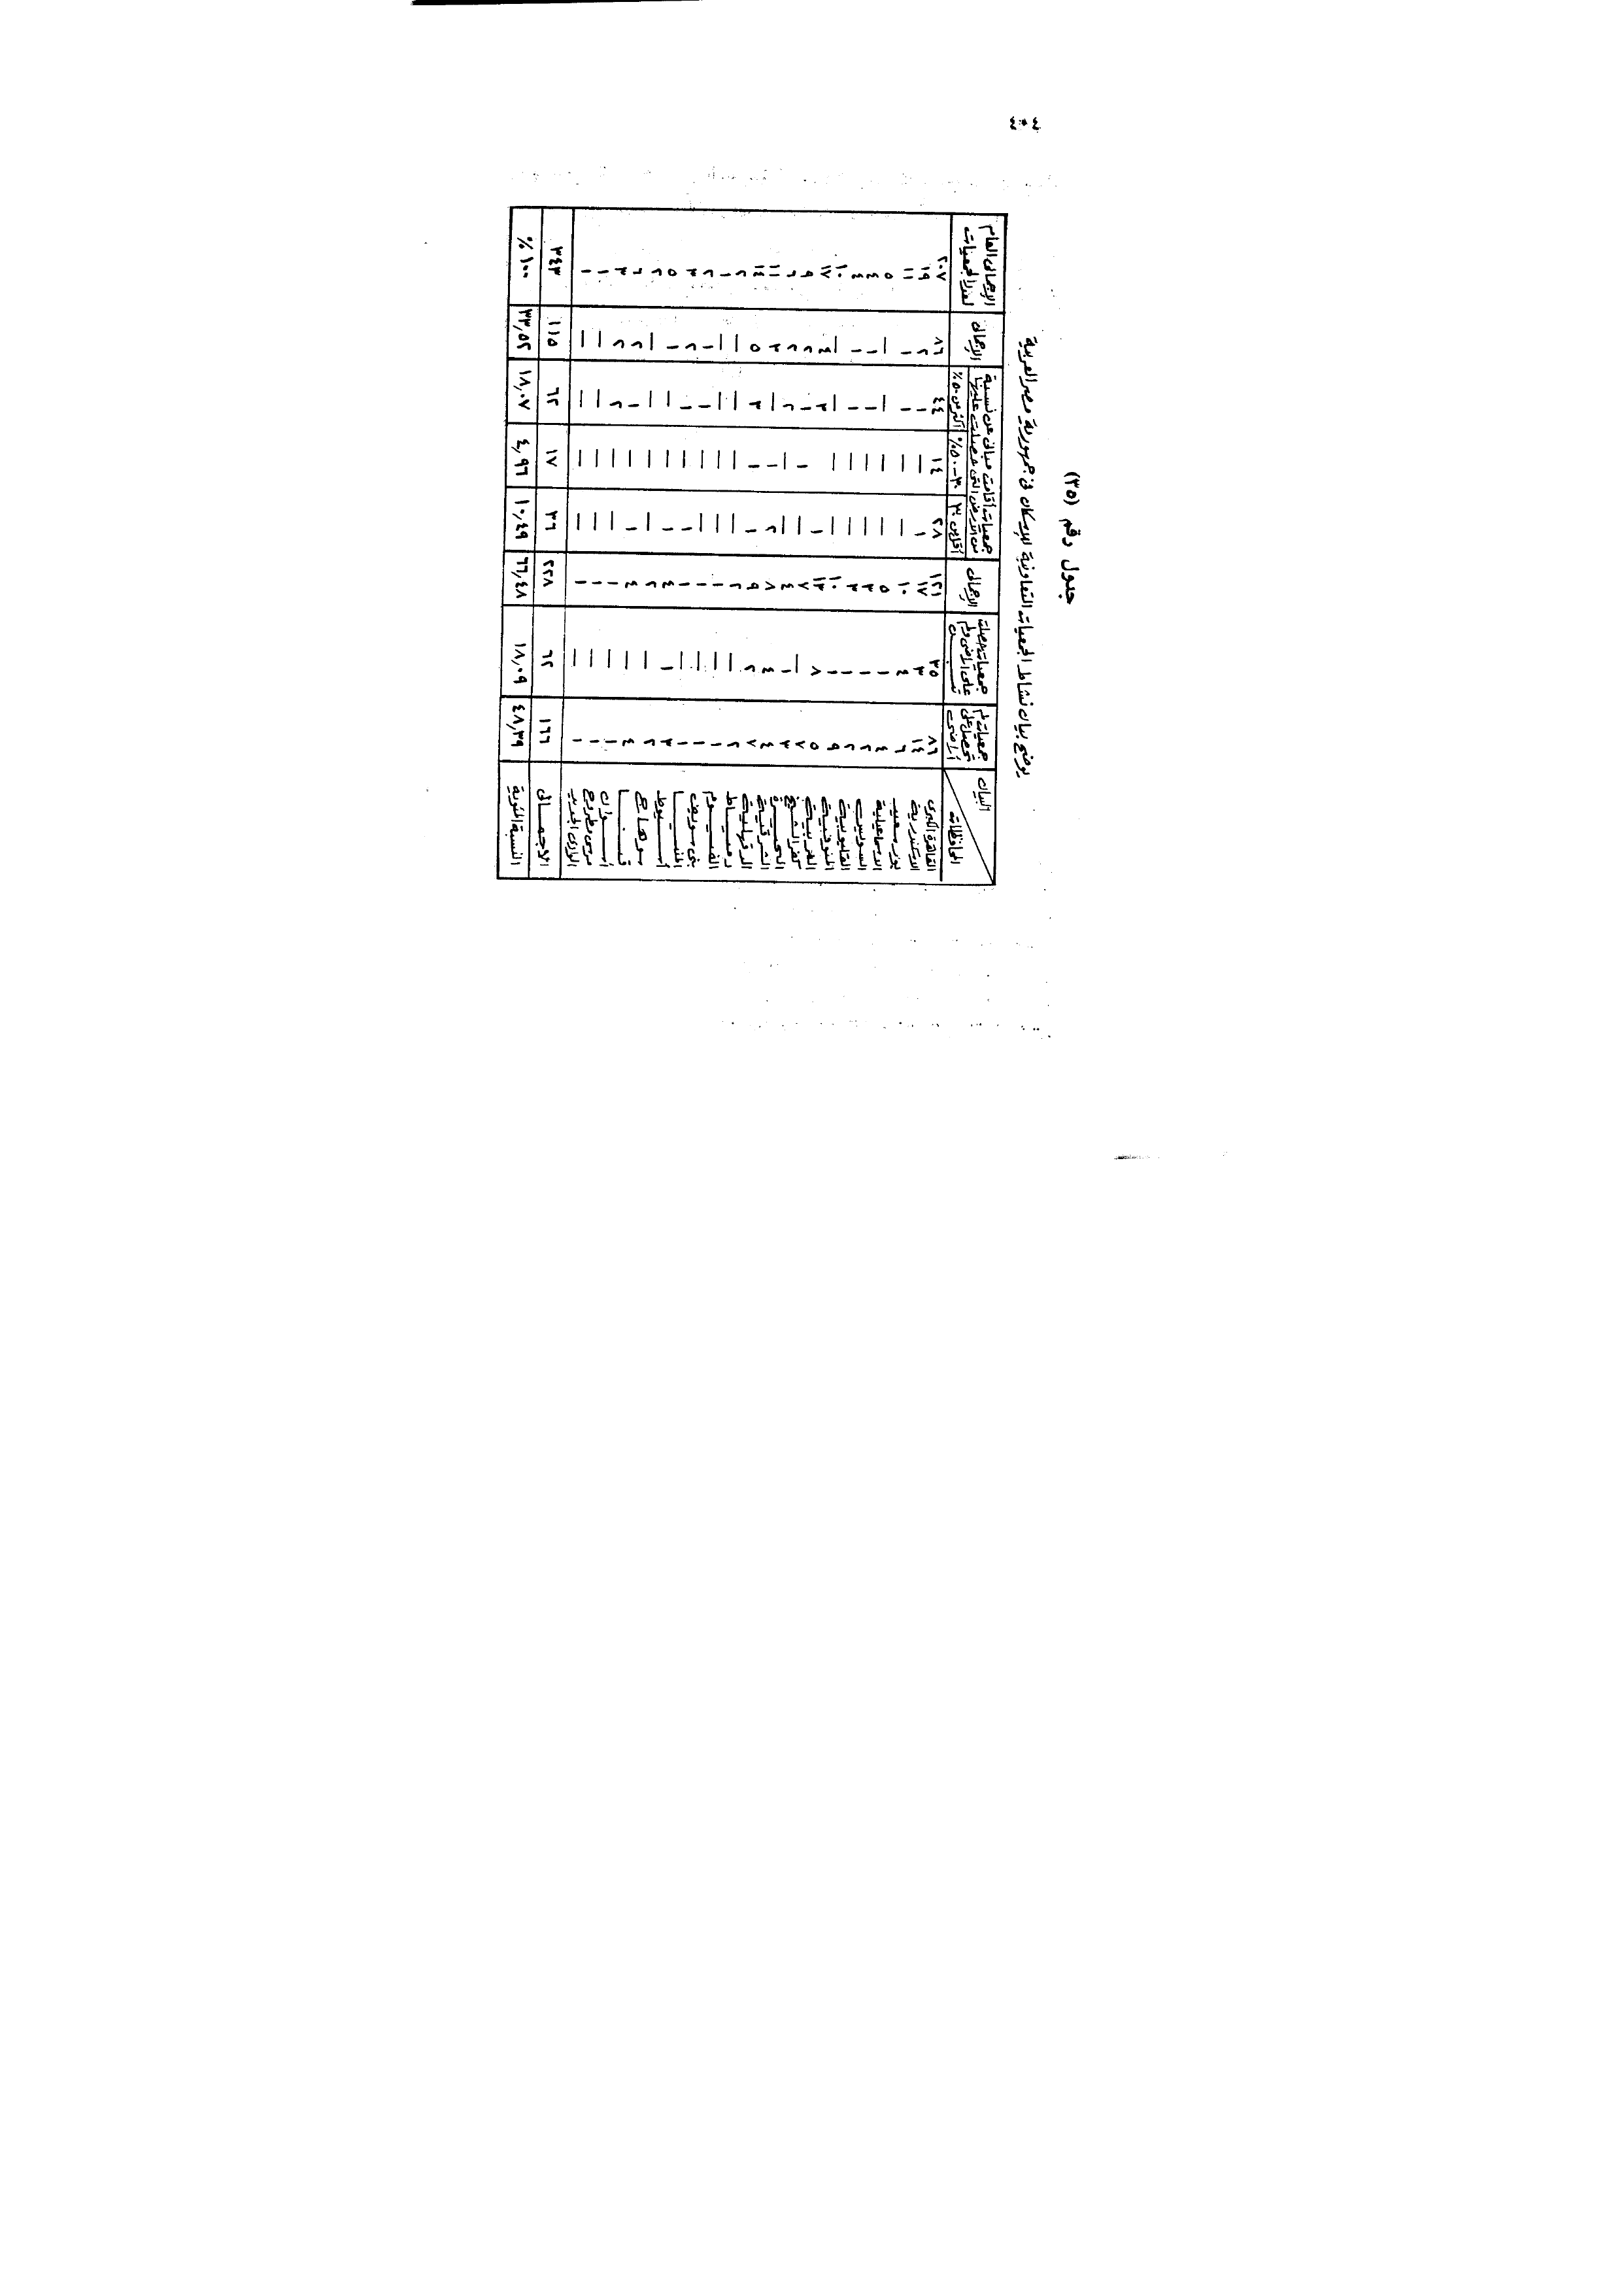 ٤٠٤
جدول رقم (٣٥)
يوضح بيان نشاط الجمعيات التعاونية للإسكان فى جمهورية مصر العربية
البيان المحافظات | جمعيات لم تحصل على أراضى | جمعيات حصلت على اراضى ولم تبـــن | الإجمالى | جمعيات أقامت مبانى عن نسبة من الأرض التى حصلت عليها | الإجمالى | الإجمالى العام لعدد الجمعيات
أقل من ٣٠٪ | ٣٠-٥٠٪ | أكثر من ٥٠٪
القاهرة الكبرى ٨٦ ٣٥ ١٢١ ٢٨ ١٤ ٤٤ ٨٦ ٢٠٧
الاسكندرية ١٤ ٣ ١٧ ١ - ١ ٢ ١٩
بورسعيد ٦ ٤ ١٠ - - ١ ١ ١١
الاسماعيلية ٤ ١ ٥ - - - - ٥
السويس ٢ ١ ٣ - - ١ ١ ٤
القليوبية ٢ ١ ٣ - - ١ ١ ٤
المنوفية ٩ ١ ١٠ - - - - ١٠
الغربية ٥ ٨ ١٣ ١ ٣ ٤ ١٧
كفر الشيخ ٧ - ٧ - ١ ١ ٢ ٩
البحيرة ٣ ١ ٤ - - ٢ ٢ ٦
الشرقية ٤ ٤ ٨ ٢ ١ - ٣ ١١
الدقهلية ٧ ٢ ٩ ١ ١ ٣ ٥ ١٤
دمياط ٢ - ٢ - - - - ٢
الفيوم ١ - ١ - - - - ١
بنى سويف ١ - ١ - - ١ ١ ٢
المنيا ١ - ١ ١ - ١ ٢ ٣
أسيوط ٣ ١ ٤ ١ - - ١ ٥
سوهاج ٢ - ٢ - - - - ٢
قنا ٤ - ٤ ١ - ١ ٢ ٦
أسوان ١ - ١ - - ٢ ٢ ٣
مرسى مطروح ١ - ١ - - - - ١
الوادى الجديد ١ - ١ - - - - ١
الاجمـــالى ١٦٦ ٦٢ ٢٢٨ ٣٦ ١٧ ٦٢ ١١٥ ٣٤٣
النسبة المئوية ٤٨,٣٩ ١٨,٠٩ ٦٦,٤٨ ١٠,٤٩ ٤,٩٦ ١٨,٠٧ ٣٣,٥٢ ١٠٠٪